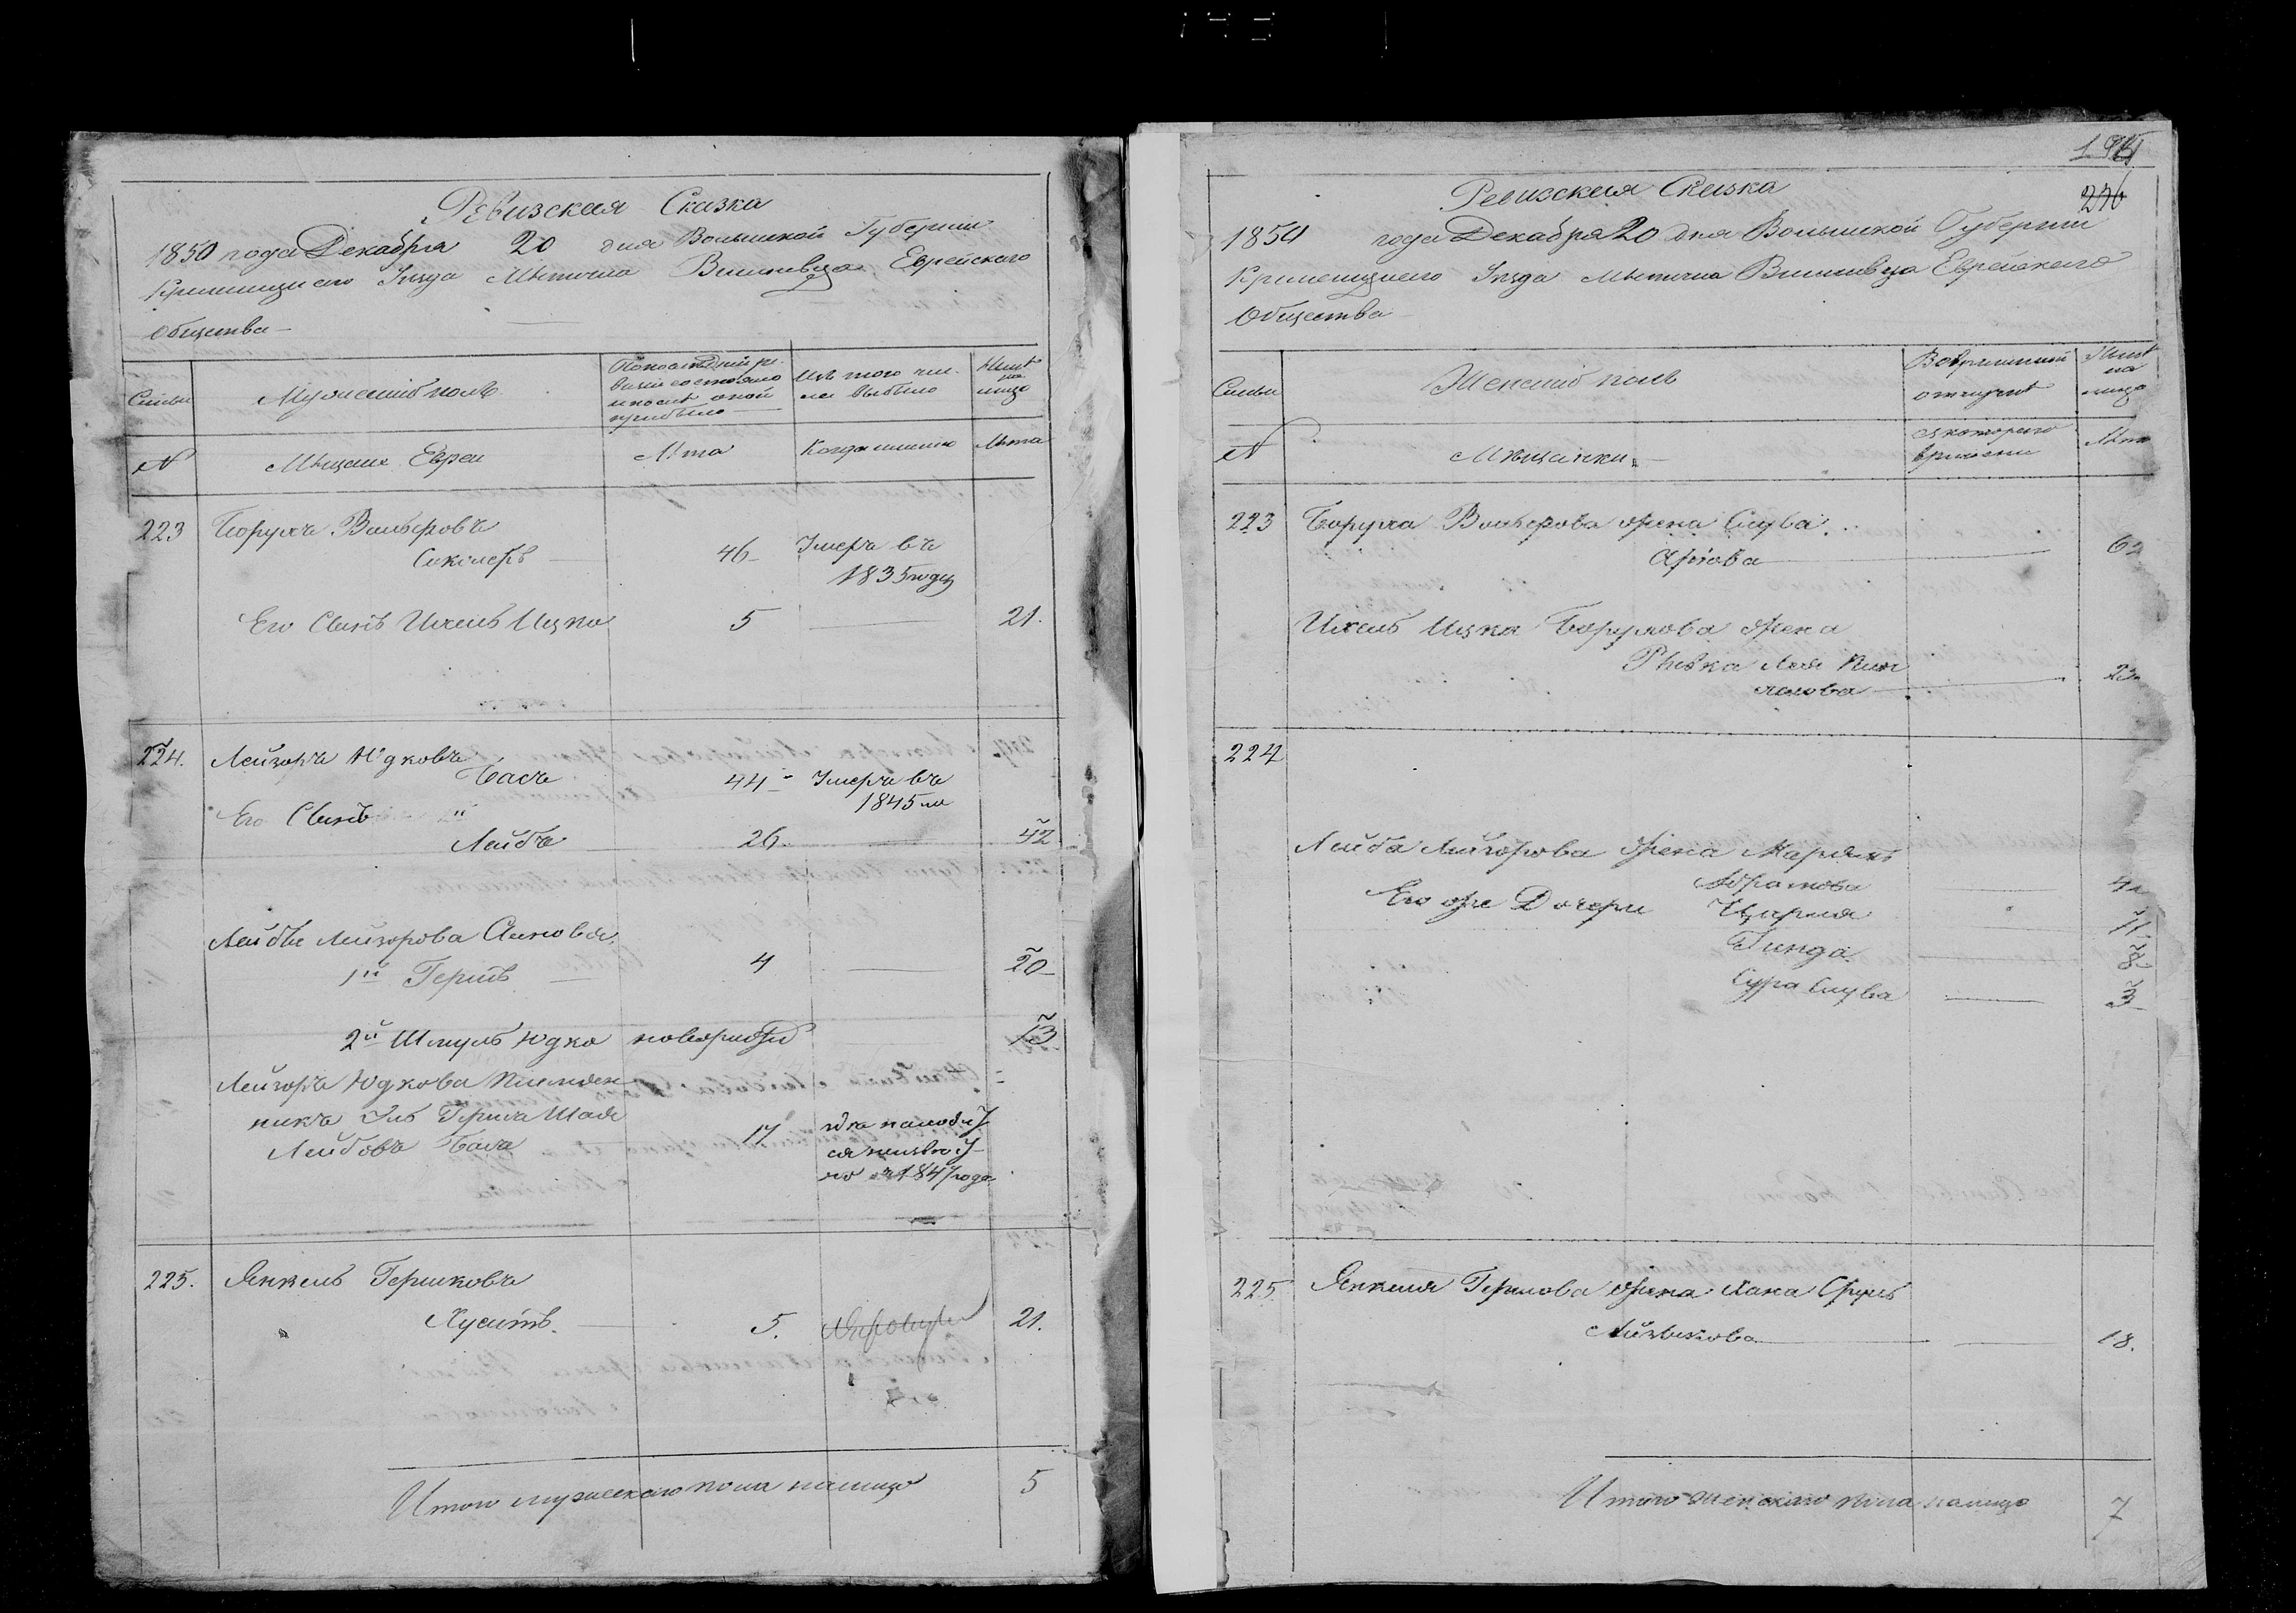 Ревизская Сказка
1850 года Декабря 20 дня Волынской Губернии
Кременецкаго Уезда Мѣстечка Вишневца Еврейскаго
Общества
Семьи
Мужескій полъ
По последней ре-
визіи состояло
и после оной
прибыло
Изъ того чис-
ла выбыло
Ныне
на
лицо
№
Мѣщане Евреи
Лѣта
Когда имянно
Лѣта
223 Борухъ Вольфовъ
46 Умеръ въ
1835 году
Его Сынъ Ихель Ицко 5 21.
224. Лейзоръ Юдковъ
Басъ 44 Умеръ въ
1845 м
Его Сынъ
Лейбъ 26. 42
Лейбы Лейзорова Сыновья
1й Гершъ 4 20
2й Шмуль Юдко новорожд 13
Лейзоръ Юдкова Племян-
никъ Гершъ Шая 17
Лейбовъ Басъ
1847 года
225. Янкель Гершковъ
5. 21.
Итого мужескаго пола налицо 5
194
246
Ревизская Сказка
1850 года Декабря 20 дня Волынской Губернии
Кременецкаго Уезда Мѣстечка Вишневца Еврейскаго
Общества
Семьи
Женскій полъ
Во временной
отлучке
Ныне
на
лицо
№
Мѣщанки
съ котораго
времени
Лѣта
223 Боруха Вольфова жена Слува
62
Ихель Ицка Борухова жена
Ривка Лея
22
224
Лейба Лейзорова жена Марьямъ
Абрамова
Его же Дочери
11
Гинда 8
Сура Слува 3
225 Янкеля Гершова жена Хана Фрумъ
18.
Итого женскаго пола налицо 7